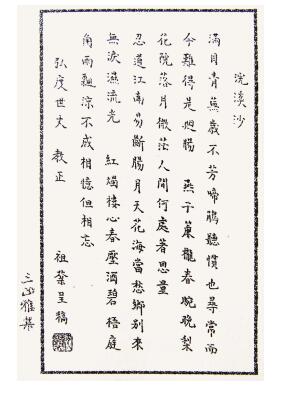 浣溪沙
滿目青蕪歲不芳啼鵑聽慣也尋常而
今難得是迴腸　燕子簾櫳春晼晚梨
花院落月微茫人間何處著思量
忍道江南易斷腸月天花海當愁鄉別來
無淚濕流光　紅燭樓心春壓酒碧梧庭
角雨飄涼不成相憶但相忘
弘度世丈　教正
祖棻呈稿